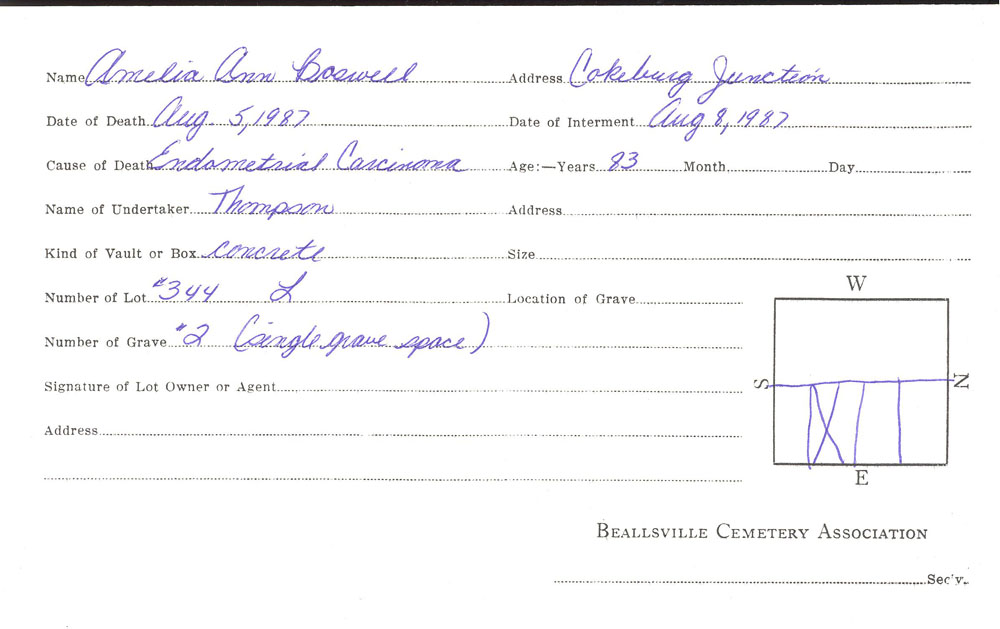 Name Amelia Ann Boswell Address Cokeburg Junction
Date of Death Aug. 5, 1987 Date of Interment Aug 8, 1987
Cause of Death Endometrial Carcinoma Age:—Years 83 Month Day
Name of Undertaker Thompson Address
Kind of Vault or Box concrete Size
Number of Lot #344 L Location of Grave
W
Number of Grave #2 (single grave space)
Signature of Lot Owner or Agent
S N
Address
E
BEALLSVILLE CEMETERY ASSOCIATION
Sec'y.